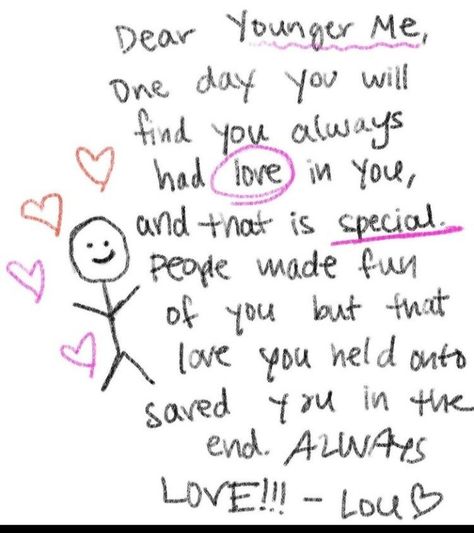 Dear Younger Me,
One day you will
find you always
had love in you,
and that is special.
People made fun
of you but that
love you held onto
saved you in the
end. ALWAYS
LOVE!!! - Lou♡